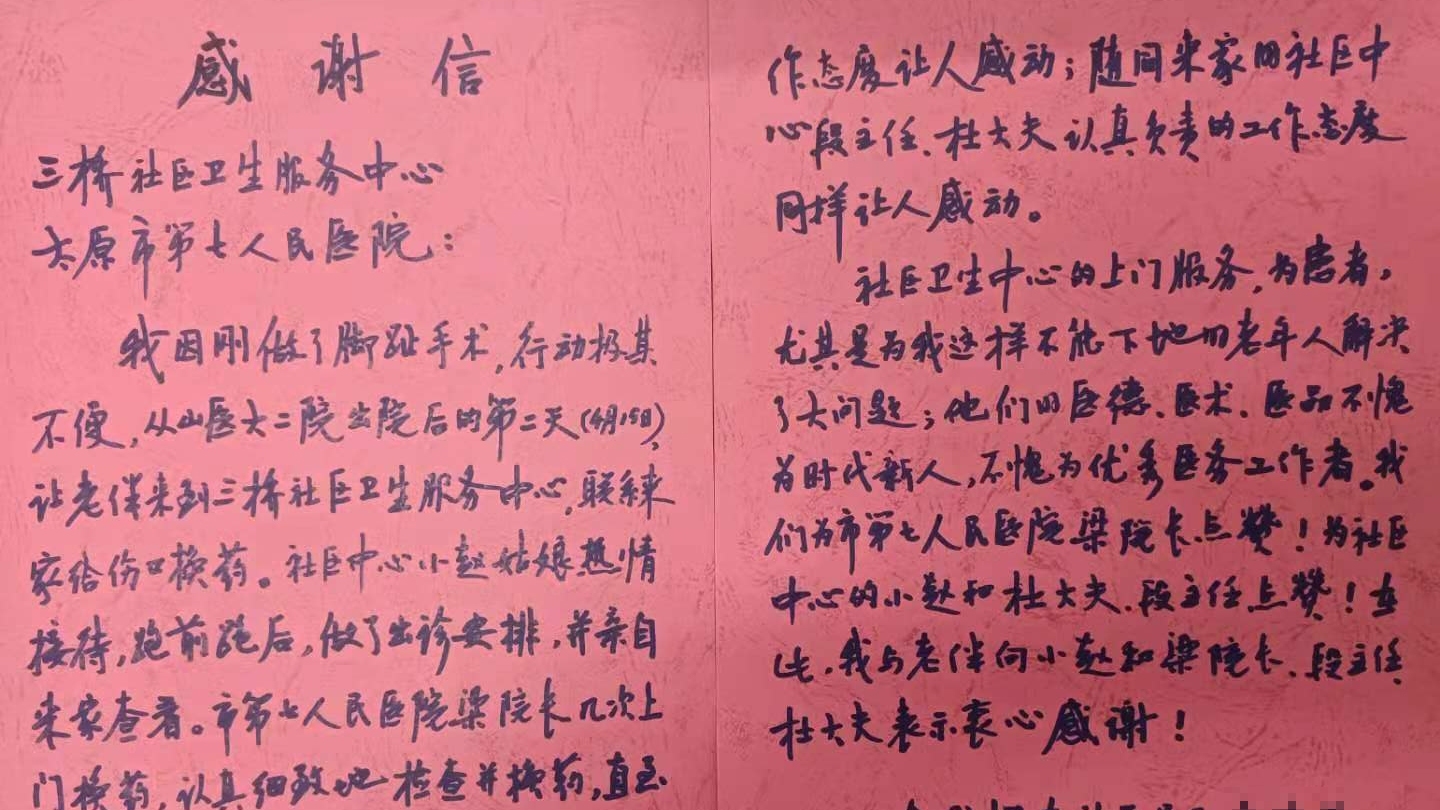 感谢信
三桥社区卫生服务中心
太原市第七人民医院：
我因刚做了脚趾手术，行动极其
不便，从山医大二院出院后的第二天（月15日），
让老伴来到三桥社区卫生服务中心，联系来
家给伤口换药。社区中心小赵姑娘热情
接待，跑前跑后，做了出诊安排，并亲自
来家查看。市第七人民医院梁院长几次上
门换药，认真细致地检查并换药，直至
作态度让人感动；随同来家的社区中
心段主任、杜大夫认真负责的工作态度
同样让人感动。
社区卫生中心的上门服务，为患者，
尤其是为我这样不能下地的老年人解决
了大问题；他们的医德、医术、医品不愧
为时代新人，不愧为优秀医务工作者。我
们为市第七人民医院梁院长点赞！为社区
中心的小赵和杜大夫、段主任点赞！在
此，我与老伴向小赵和梁院长、段主任
杜大夫表示衷心感谢！